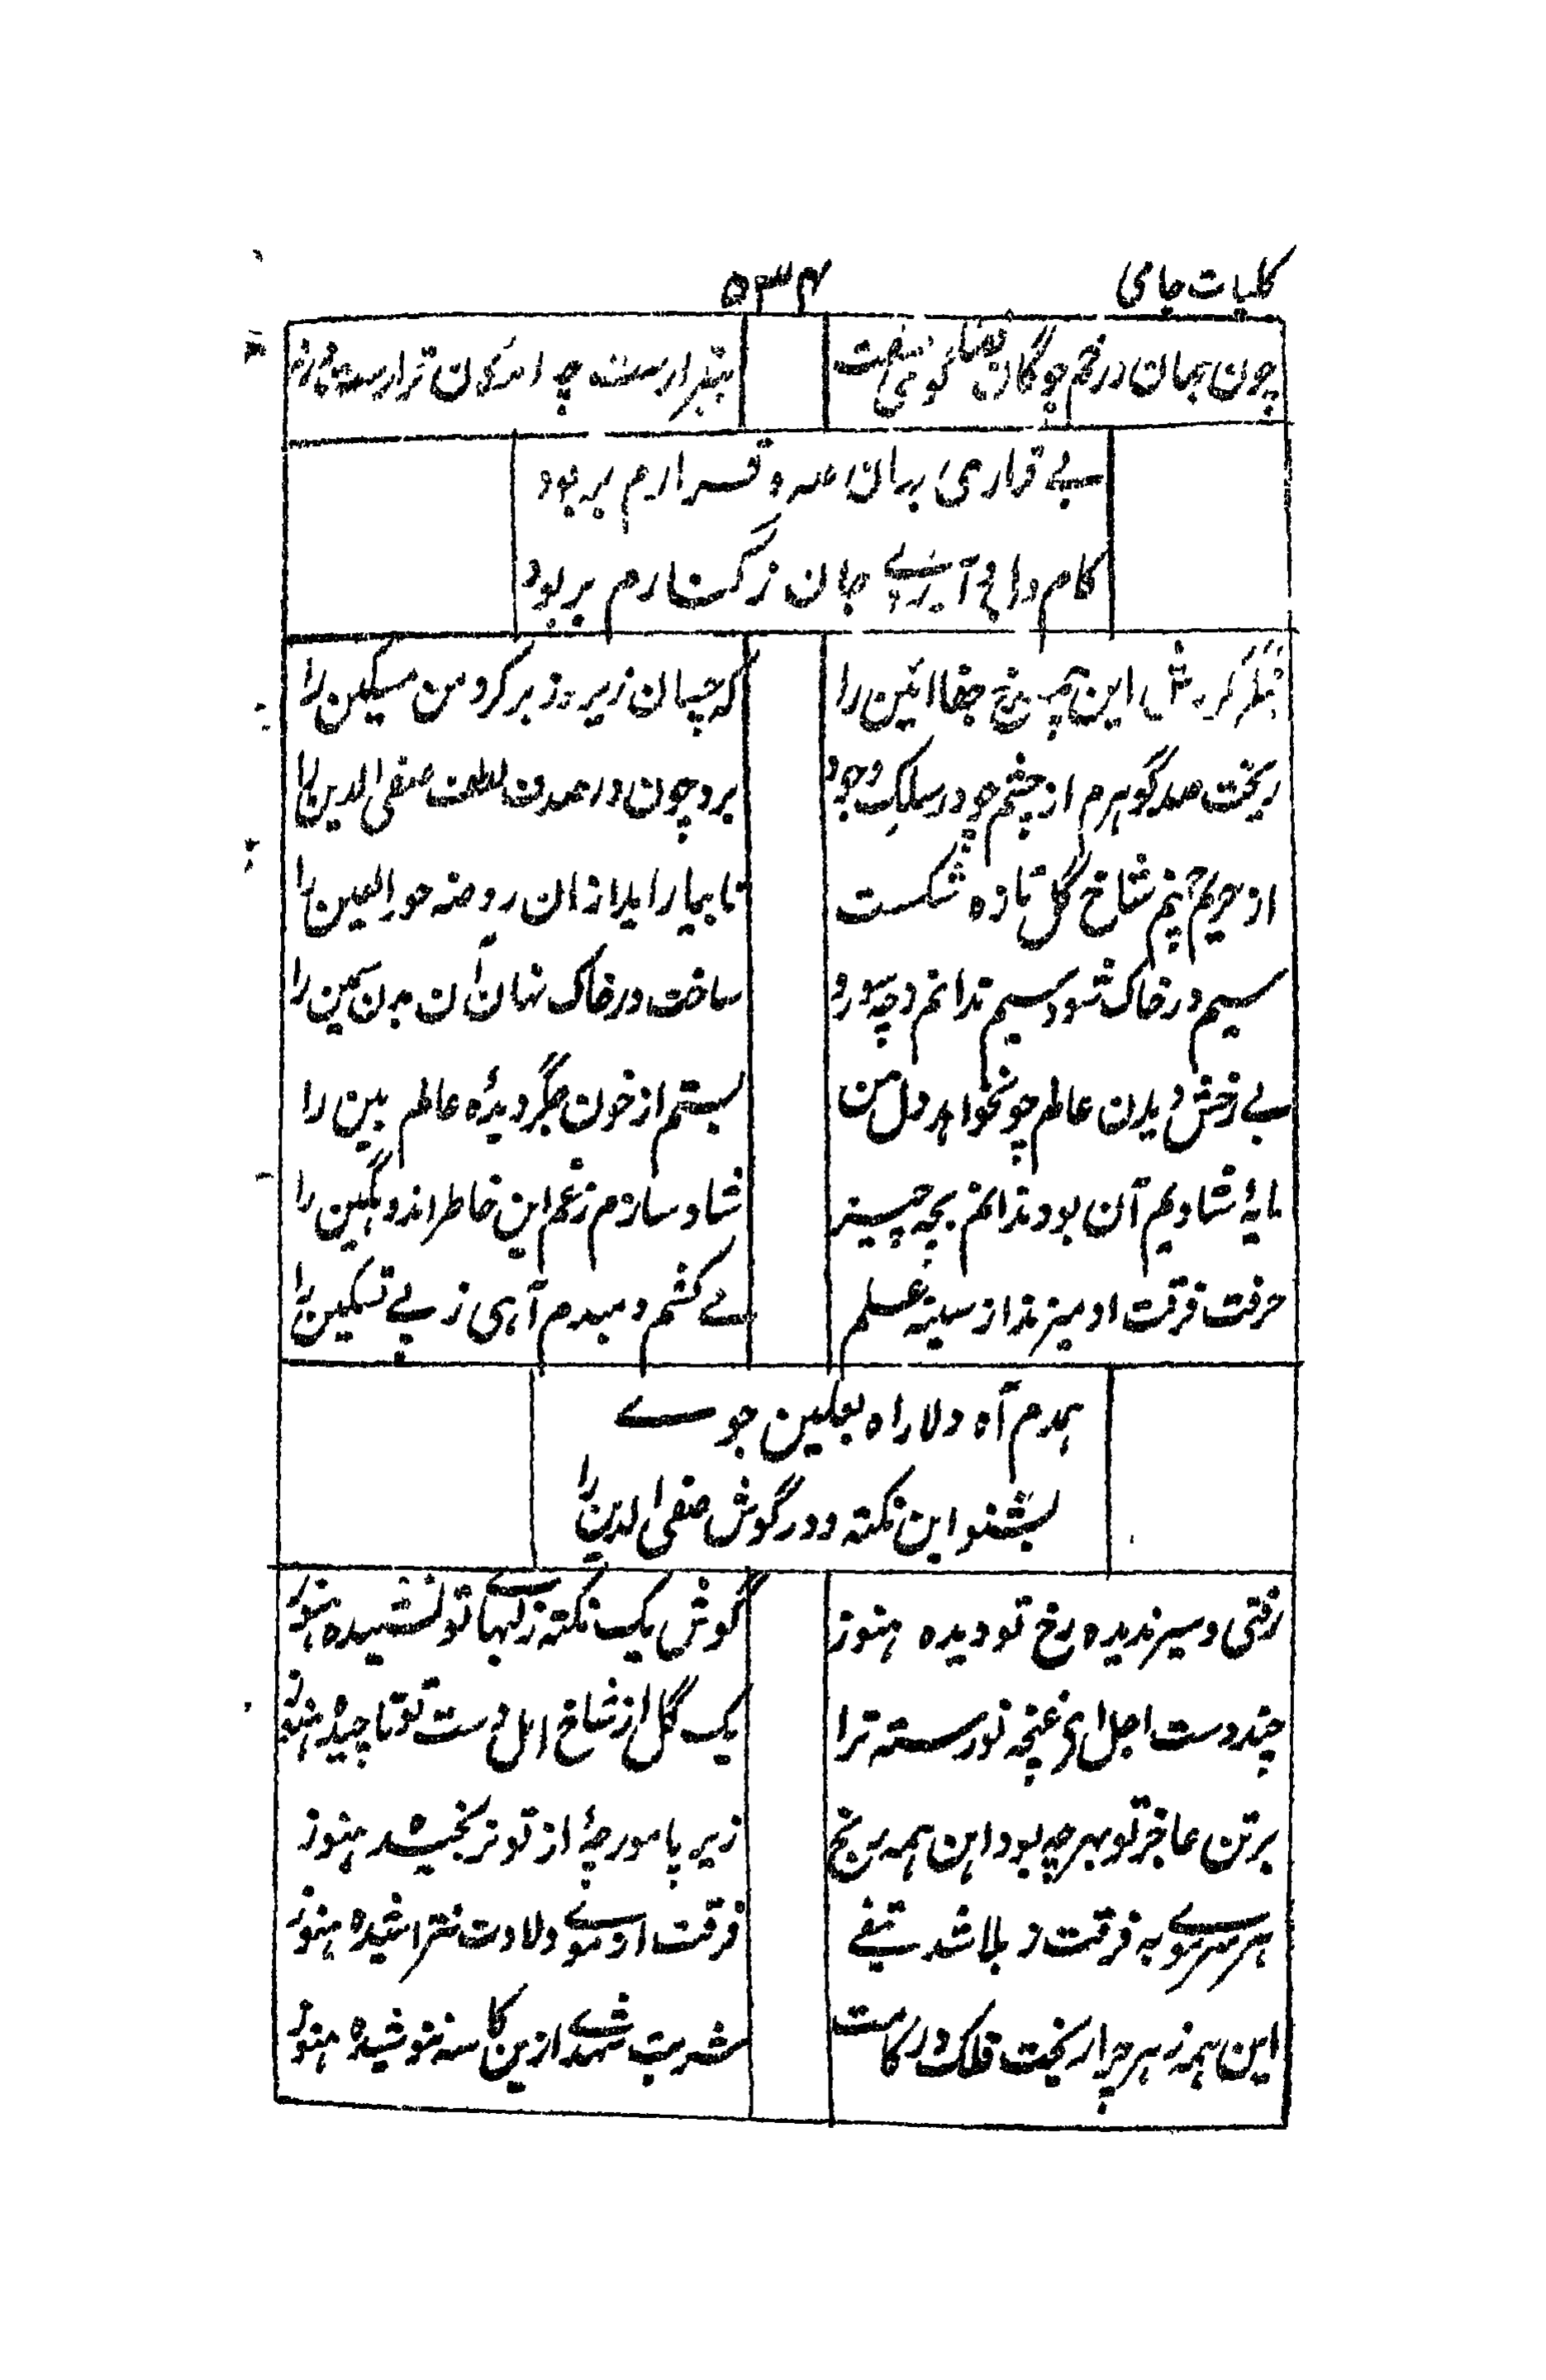 کلیات جامی
۵۳۴
چون جهان در خم چوگان قضا گوی صفت
بیقرارست چه امکان قرارست مرا
بے قراری جهان صبر و قرارم بربود
کام دل آرزوے جان ز کنارم بربود
بنگر گردش این چرخ جفا آئین را
که چسان زیر و زبر کرد من مسکین را
ریخت صد گوهرم از چشم چو در سلک وجود
برد چون در صدف لطف صفی الدین را
از حریم چمنم شاخ گل تازه شکست
تا بیاراید ازان روضه حور العین را
سیم در خاک شود سیم ندانم ز چه رو
ساخت در خاک نهان آن بدن سیمین را
بے رخش دیدن عالم چو نخواهد دل من
بستم از خون جگر دیدهٔ عالم بین را
مایهٔ شادیم آن بود ندانم بچه چیز
شاد سازم ز غم این خاطر اندوهگین را
حرفت فرقت او میزند از سینه علم
مے کشم دمبدم آهی ز پے تسکین را
همدم آه دلا راه بعلیین جوے
بشنو این نکته و در گوش صفی الدین را
رفتی و سیر ندیده رخ تو دیده هنوز
گوش یک نکته ز لبهاے تو نشنیده هنوز
چید دست اجل ای غنچه نورسته ترا
یک گل از شاخ امل دست تو ناچیده هنوز
بر تن عاجز تو بهر چه بود این همه رنج
زیر پا مورچهٔ از تو نرنجیده هنوز
هر سر موے به فرقت ز بلا شد تیغے
فرقت از موے ولادت نتراشیده هنوز
این همه زهر چرا ریخت فلک در کامت
شربت شهدے ازین کاسه ننوشیده هنوز